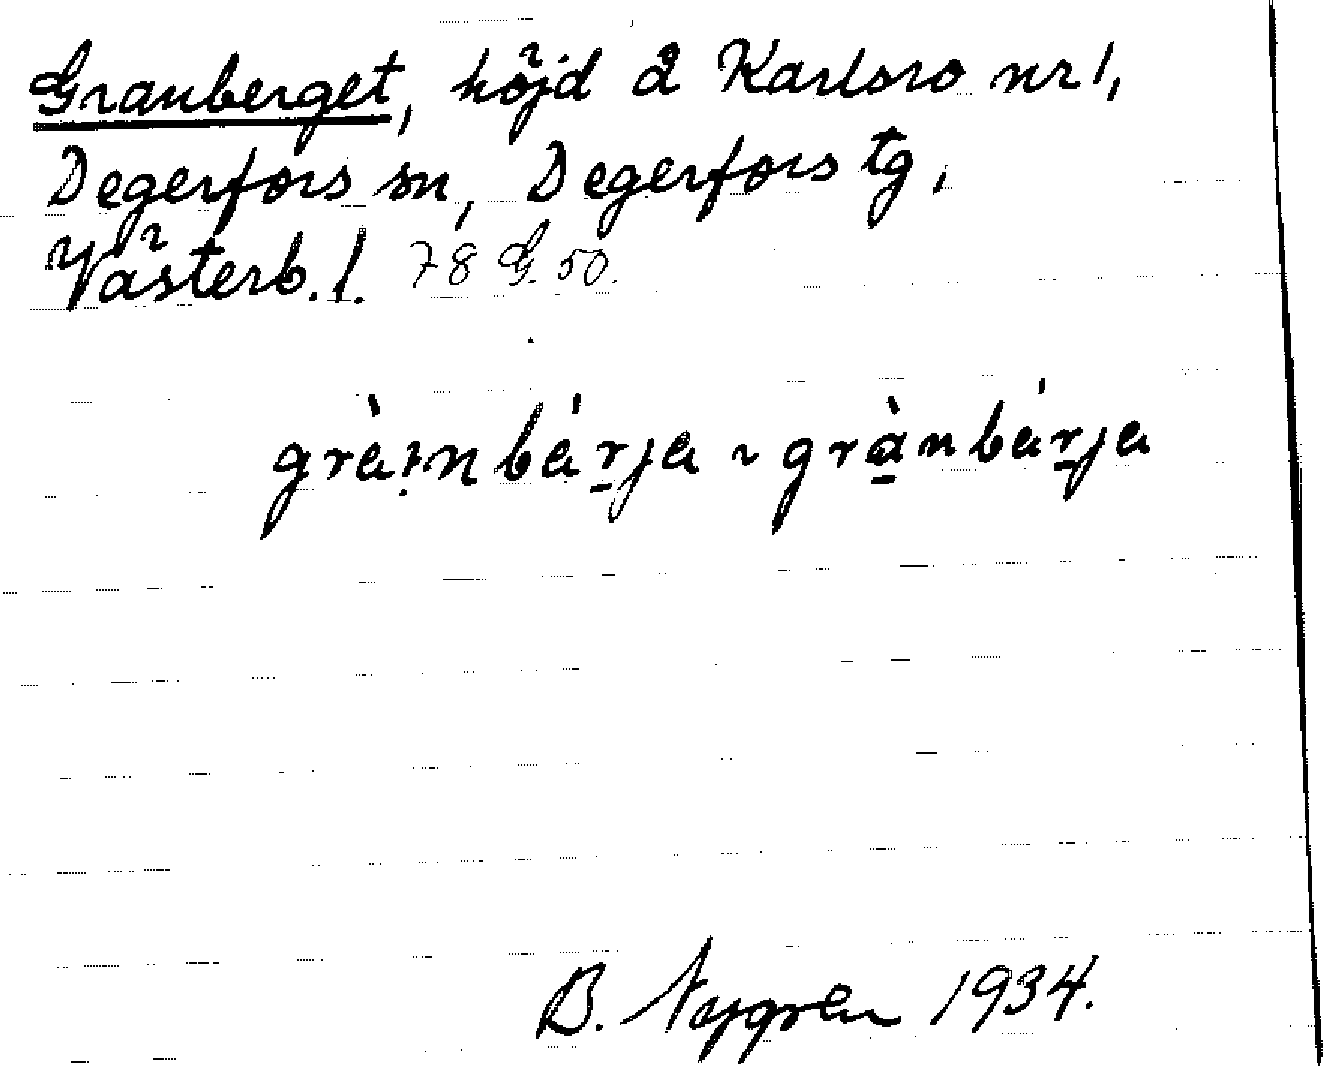 Granberget, höjd å Karlsro nr 1,
Degerfors sn, Degerfors tg,
Västerb. l. 78 G. 50.
gràınbá̱rja ~ grà̱nbá̱rja
B. Nygren 1934.